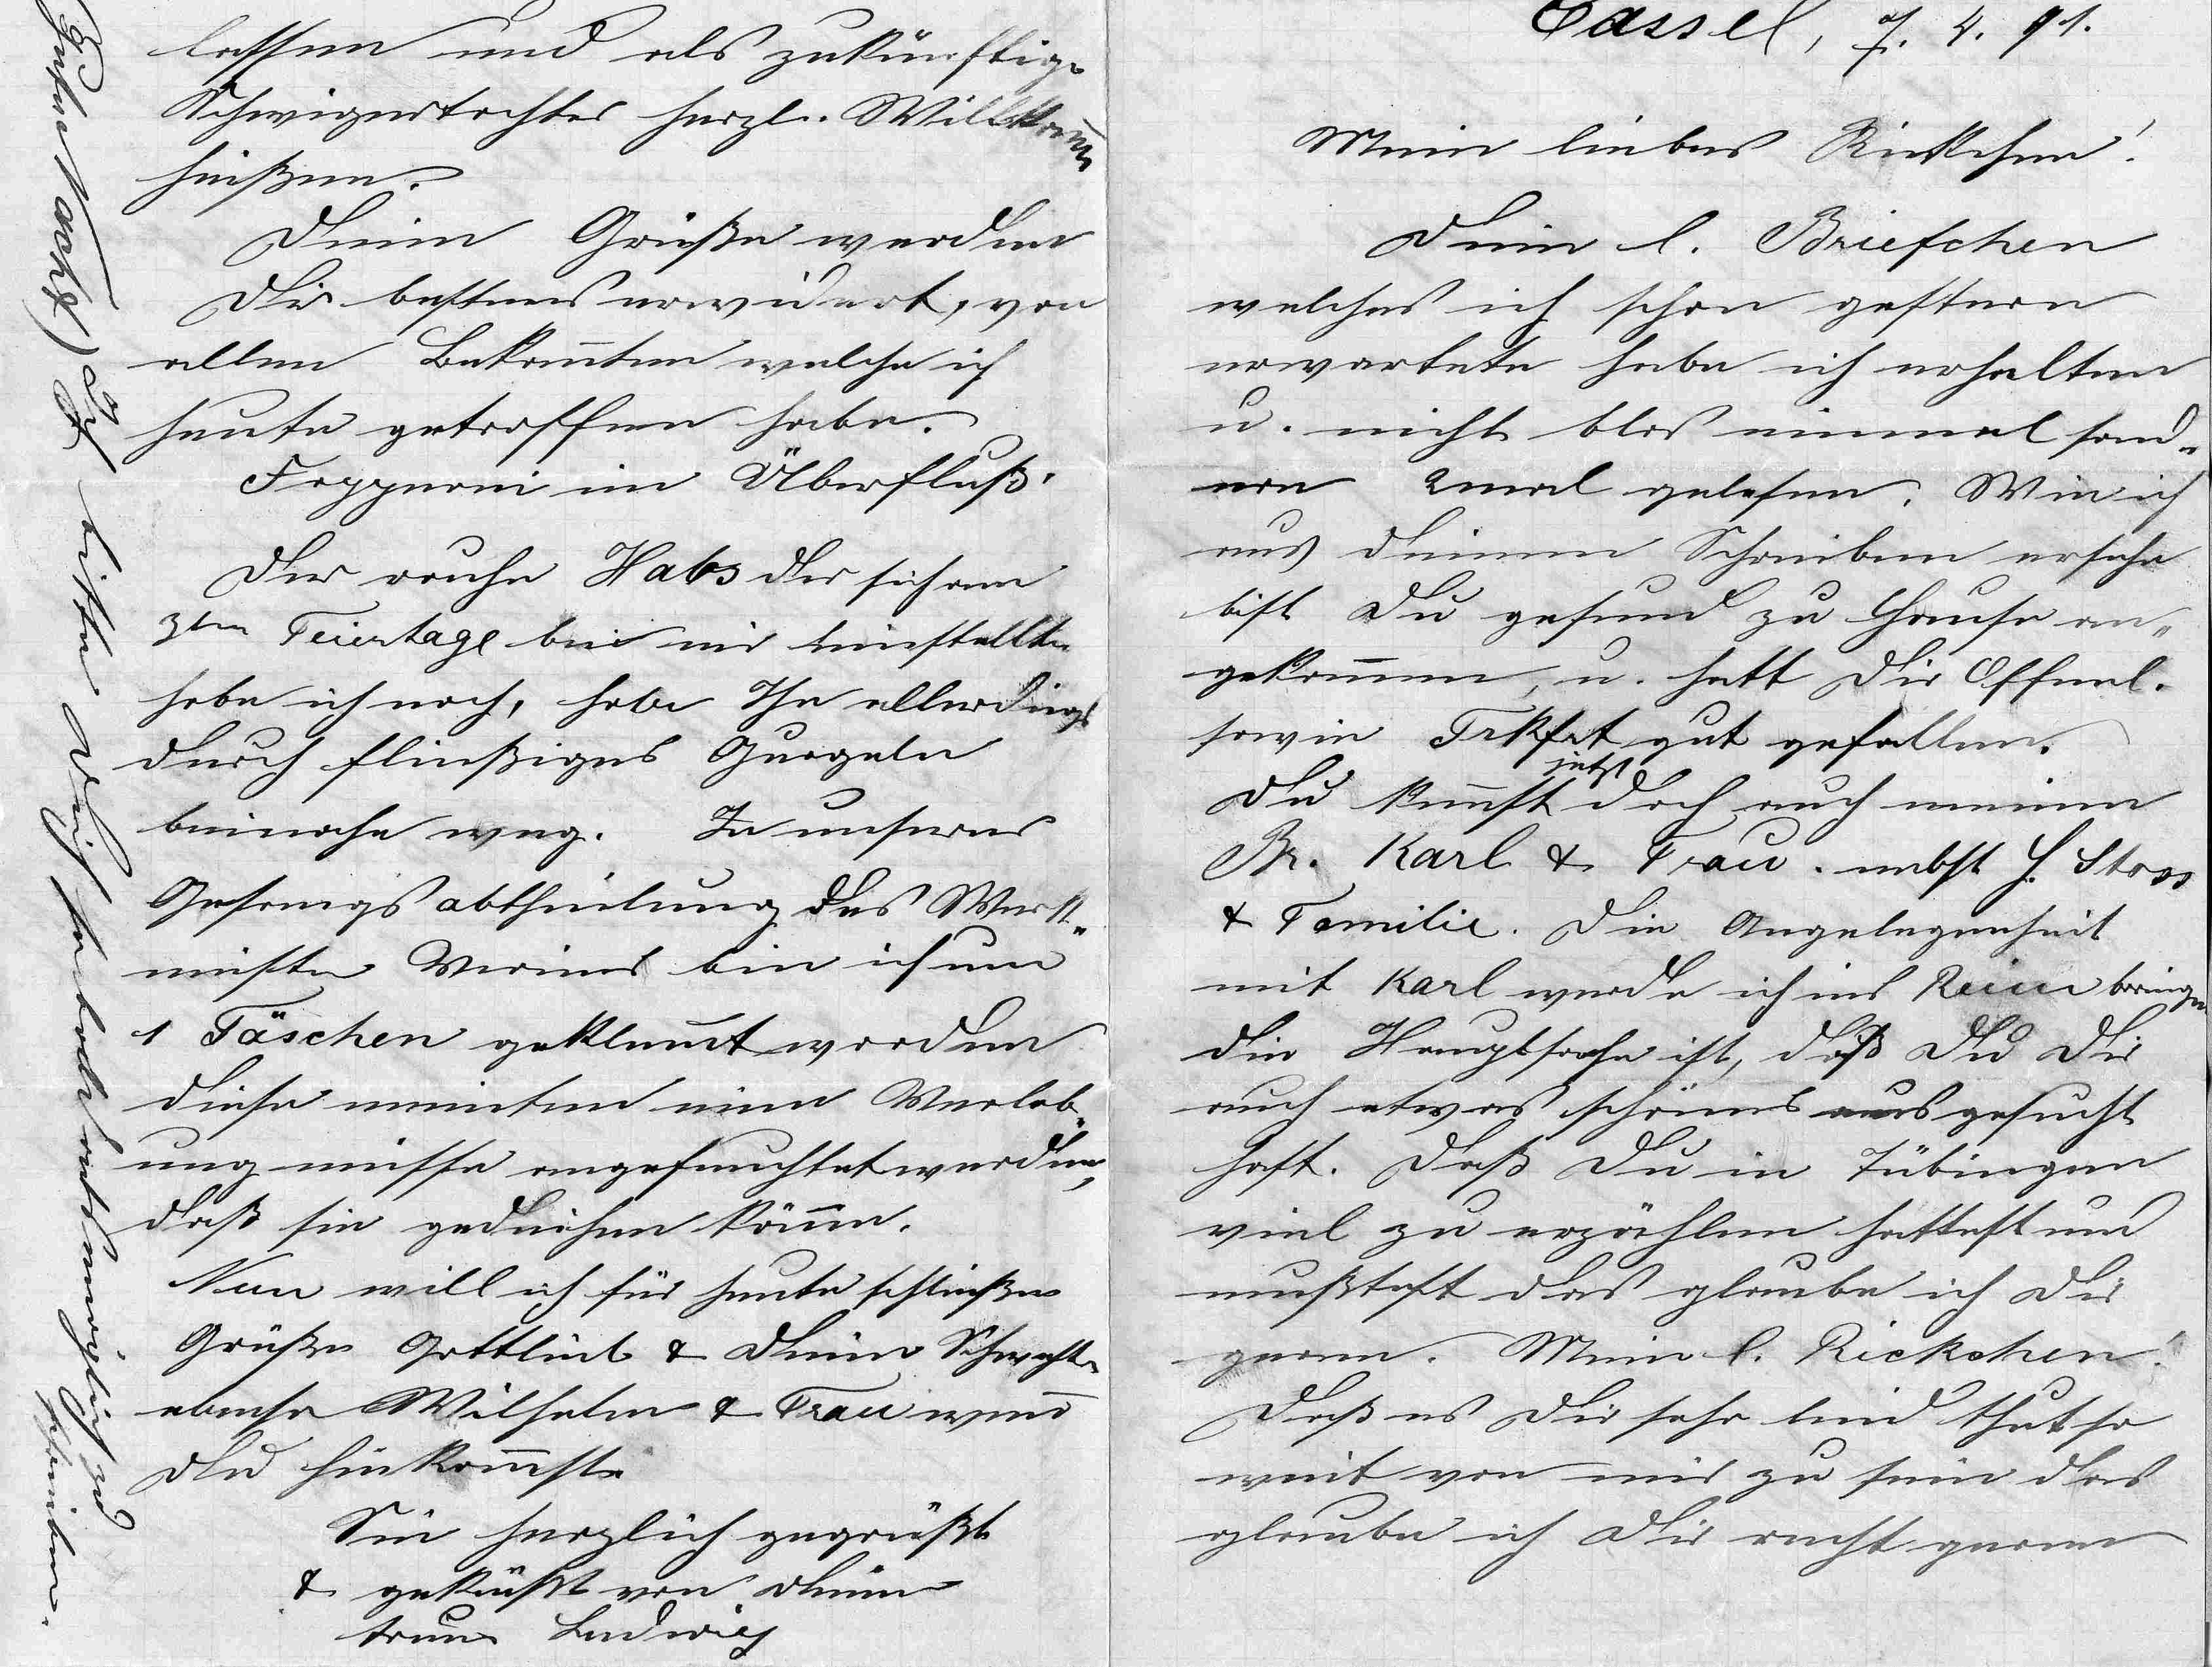 Cassel, 7. 4. 91.
Mein liebes Riekchen!
Dein l. Briefchen
welches ich schon gestern
erwartete habe ich erhalten
u. nicht blos einmal sond-
ern 2mal gelesen. Wie ich
aus deinem Schreiben ersehe
bist Du gesund zu Hause an-
gekommen, u. hatt Dir
sowie gut gefallen.
Du kennst jetzt doch auch meinen
Br. Karl & Frau. nebst H. Stoss
& Familie. Die Angelegenheit
mit Karl werde ich ins Reine bringen
die Hauptsache ist, daß Du Dir
auch etwas schönes ausgesucht
hast. Daß Du in Tübingen
viel zu erzählen hattest und
mußtest das glaube ich Dir
gerne. Mein l. Rickchen!
Daß es Dir sehr leid thut so
weit von mir zu sein das
glaube ich Dir recht gerne
lassen und als zukünftige
Schwigertochter herzl. Willkomm
heißen.
Deine Grüße werden
Dir bestens erwidert, von
allen Bekannten welche ich
heute getroffen habe.
Fopperei im Überfluß.
Der rauhe Hals der sich am
3ten Feiertage bei mir einstellte
habe ich noch, habe Ihn allerdings
durch fleißiges Gurgeln
beinahe weg. In unserer
Gesangsabtheilung des Werk-
meister Vereins bin ich um
1 Fäschen geklemmt worden
diese meinten eine Verlob-
ung müsse angefeuchtet werden,
daß sie gedeihen könne.
Nun will ich für heute schließen
Grüße Gottlieb & Deine Schwester
ebenso Wilhelm & Frau wenn
Du hinkommst.
Sei herzlich gegrüßt
& geküßt von Deinem
treuen Ludwig
Gute Nacht) Ich bitte Dich sobald als möglich zu
schreiben.